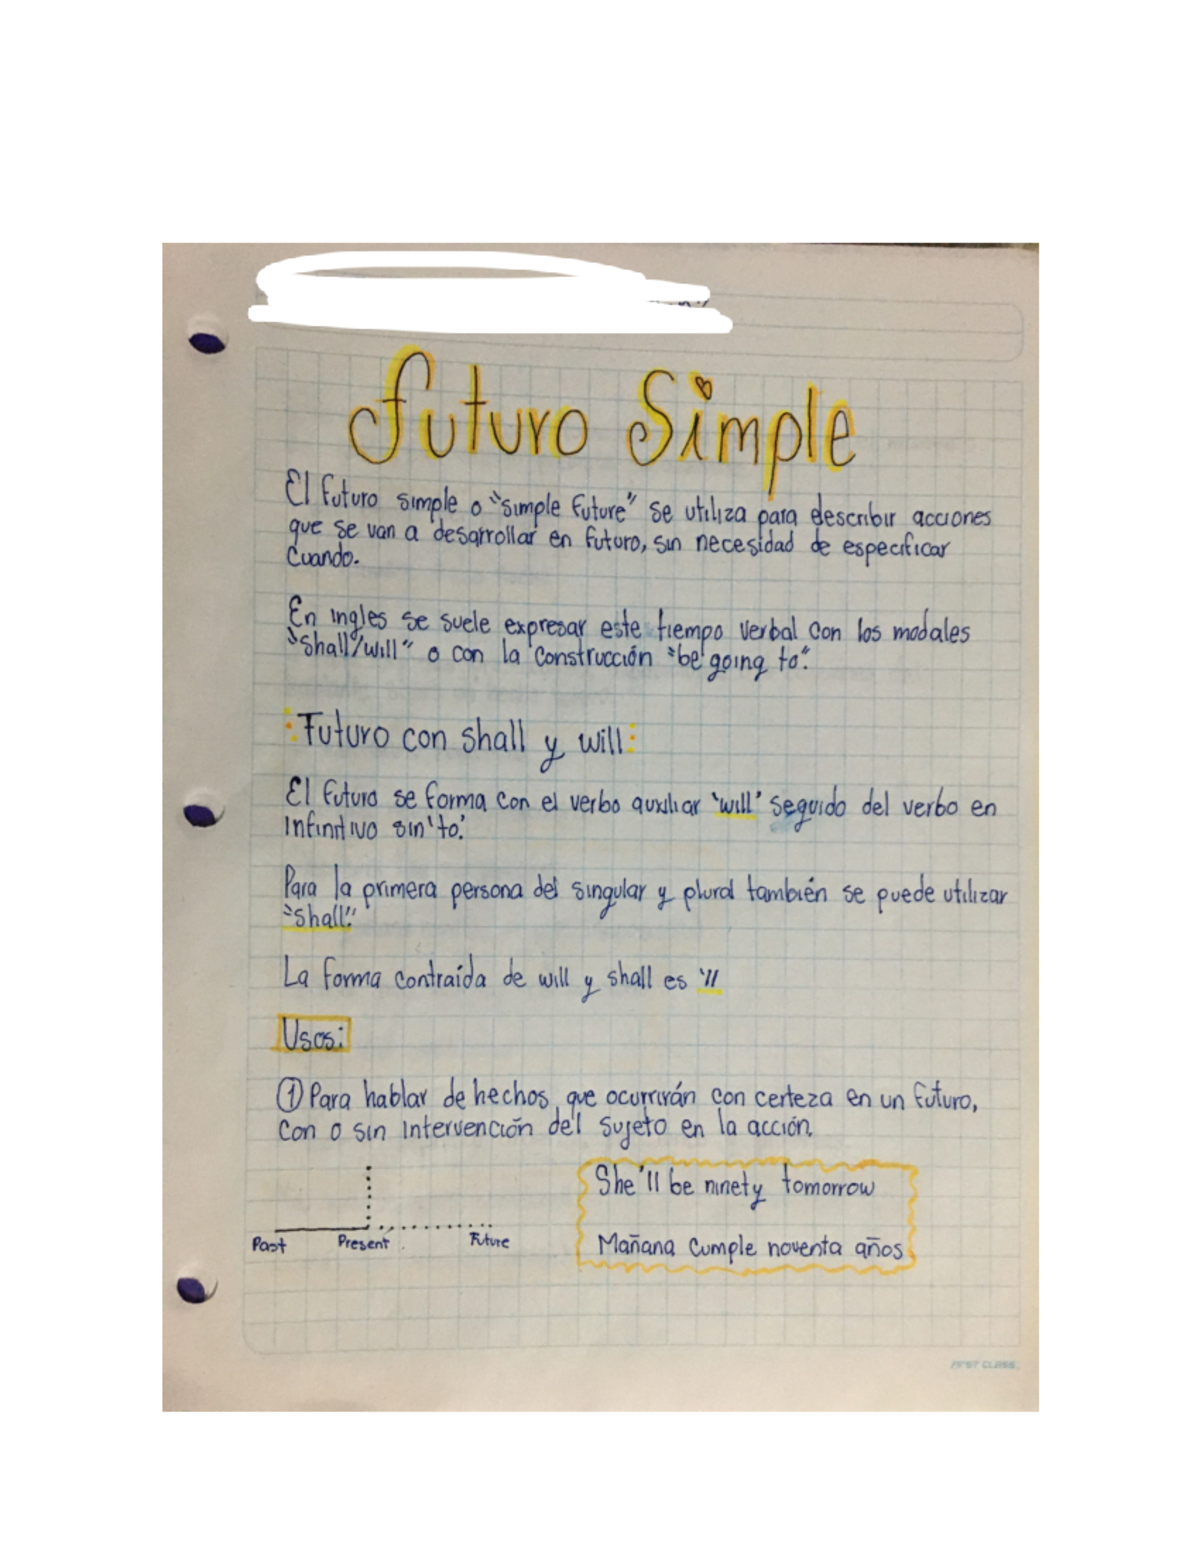 Futuro Simple
El futuro simple o "simple future" se utiliza para describir acciones
que se van a desarrollar en futuro, sin necesidad de especificar
Cuando.
En ingles se suele expresar este tiempo verbal con los modales
"shall/will" o con la construcción "be going to".
Futuro con shall y will:
El futuro se forma con el verbo auxiliar 'will' seguido del verbo en
infinitivo sin 'to'.
Para la primera persona del singular y plural también se puede utilizar
"shall".
La forma contraída de will y shall es 'll
Usos:
① Para hablar de hechos que ocurrirán con certeza en un futuro,
con o sin intervención del sujeto en la acción.
She'll be ninety tomorrow
Past Present Future
Mañana cumple noventa años
FIRST CLASS